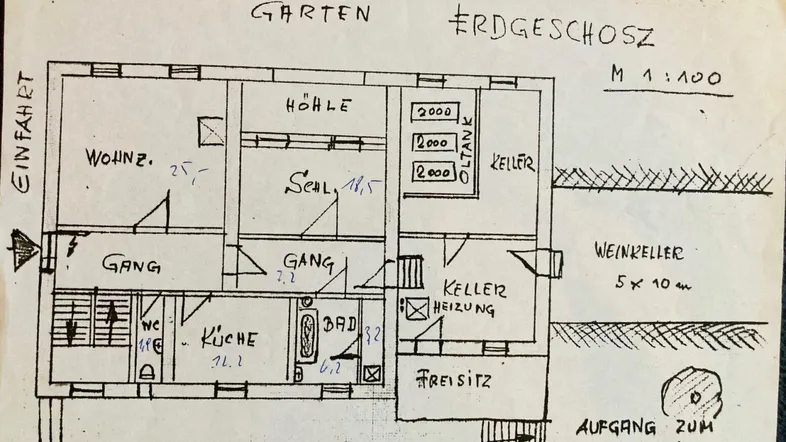 GARTEN
ERDGESCHOSZ
M 1:100
EINFAHRT
HÖHLE
2000
2000
2000
ÖLTANK
KELLER
WOHNZ.
25,-
SCHL.
18,5
GANG
GANG
7,2
KELLER
HEIZUNG
WEINKELLER
5 x 10 m
WC
KÜCHE
BAD
3,2
6,2
FREISITZ
AUFGANG ZUM